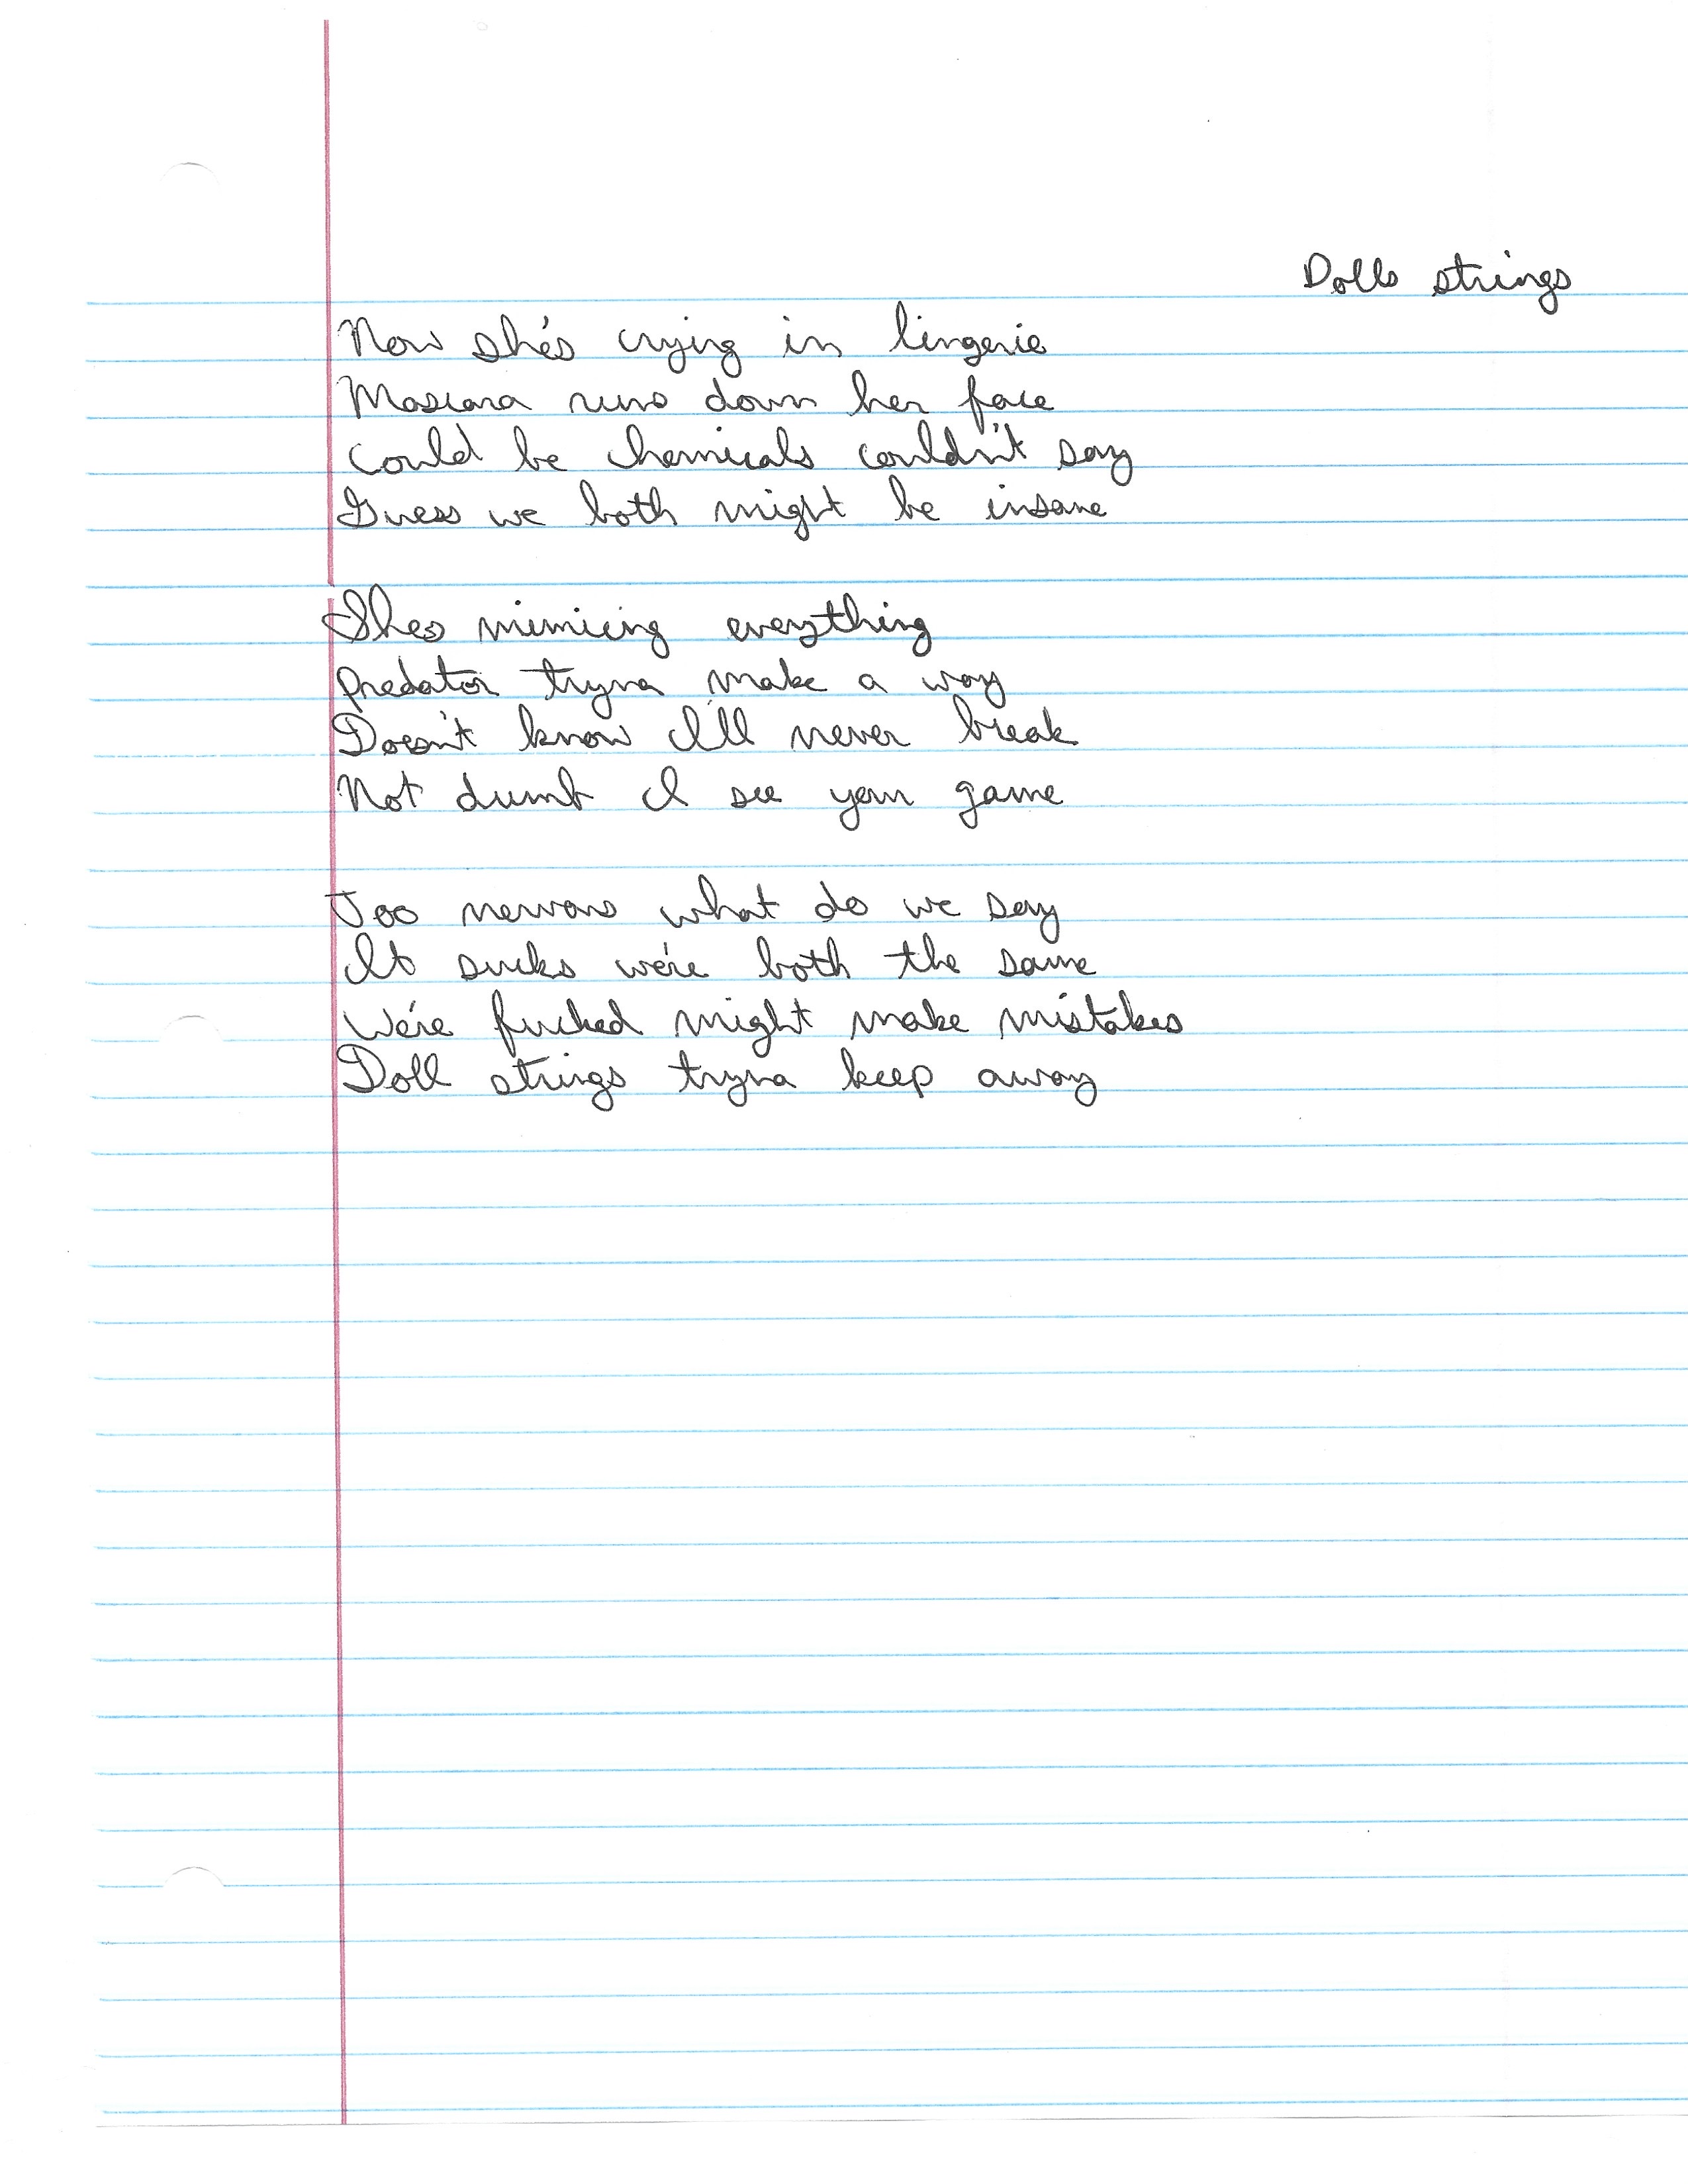 Dolls strings
Now she's crying in lingerie
Mascara runs down her face
Could be chemicals couldn't say
Guess we both might be insane
Shes mimicing everything
Predator tryna make a way
Doesn't know I'll never break
Not dumb I see your game
Too nervous what do we say
It sucks we're both the same
We're fucked might make mistakes
Doll strings tryna keep away